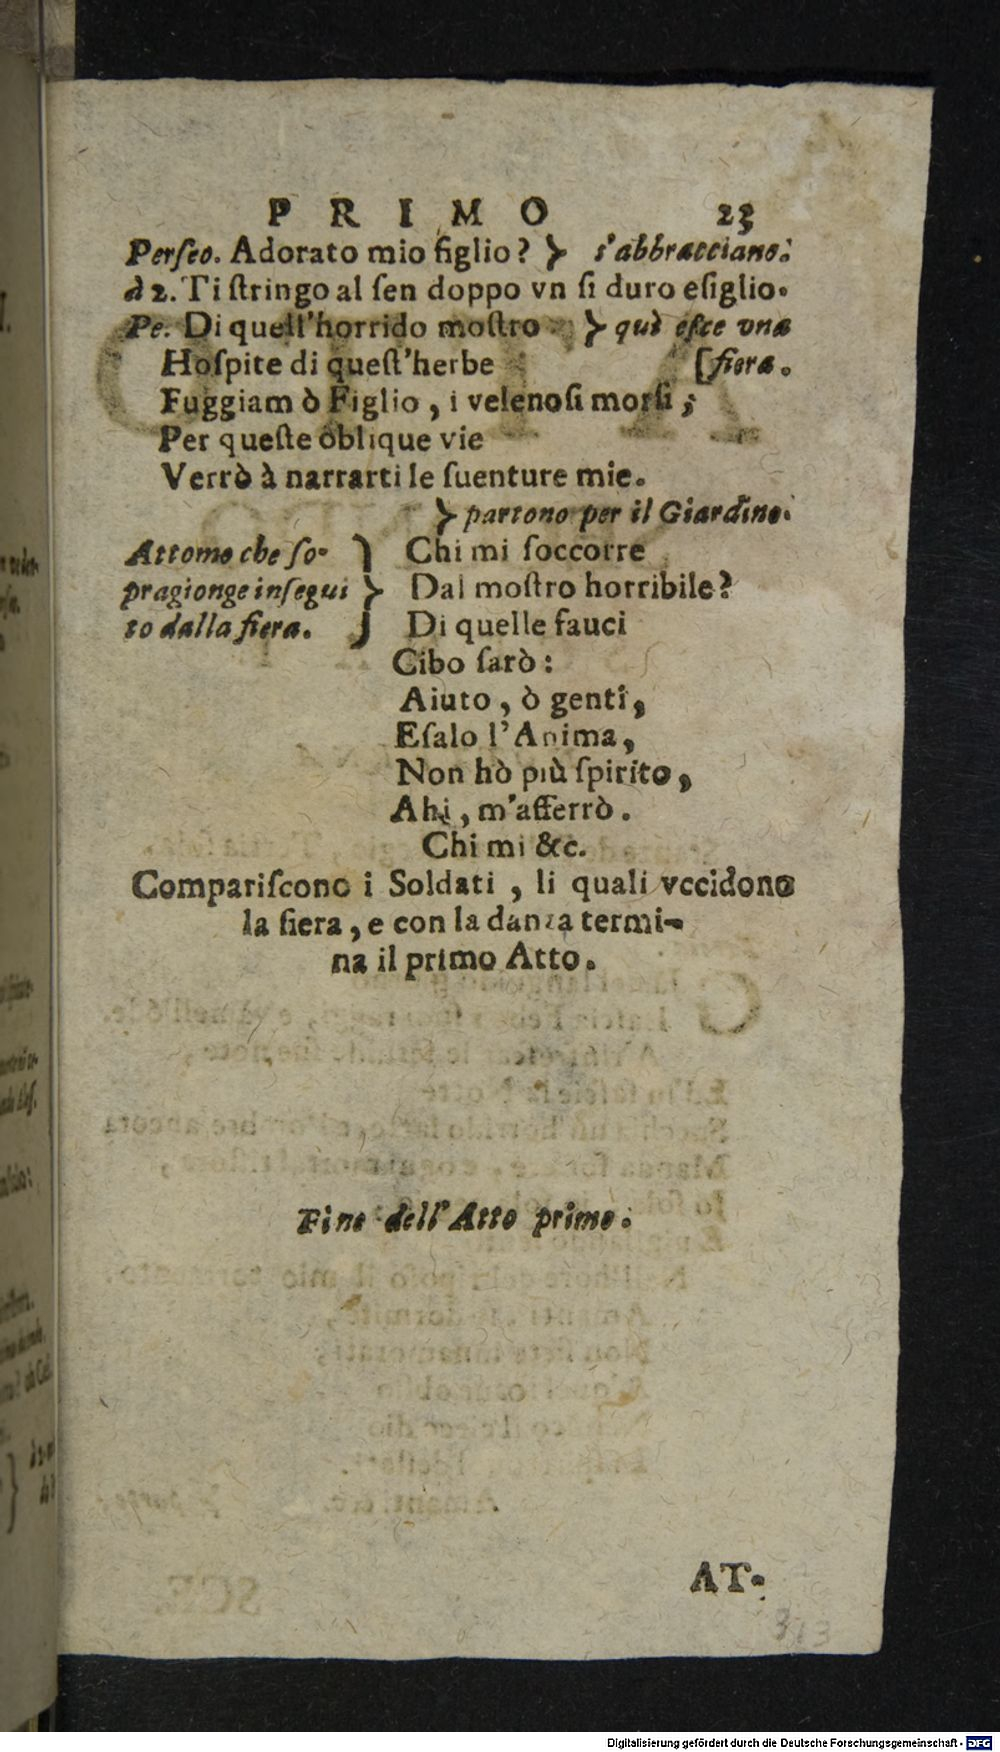 PRIMO 23
Perſeo. Adorato mio figlio? } s'abbracciano.
à 2. Ti ſtringo al ſen doppo vn ſi duro eſiglio.
Pe. Di quell'horrido moſtro } quì eſce vna
Hoſpite di queſt'herbe [fiera.
Fuggiam ò Figlio, i velenoſi morſi;
Per queſte oblique vie
Verrò à narrarti le ſuenture mie.
} partono per il Giardino.
Attomo che ſo- } Chi mi ſoccorre
pragionge inſegui } Dal moſtro horribile?
to dalla fiera. } Di quelle fauci
Cibo ſarò:
Aiuto, ò genti,
Eſalo l'Anima,
Non hò più ſpirito,
Ahi, m'afferrò.
Chi mi &c.
Compariſcono i Soldati, li quali vccidono
la fiera, e con la danza termi-
na il primo Atto.
Fine dell'Atto primo.
AT-
313
Digitalisierung gefördert durch die Deutsche Forschungsgemeinschaft - DFG